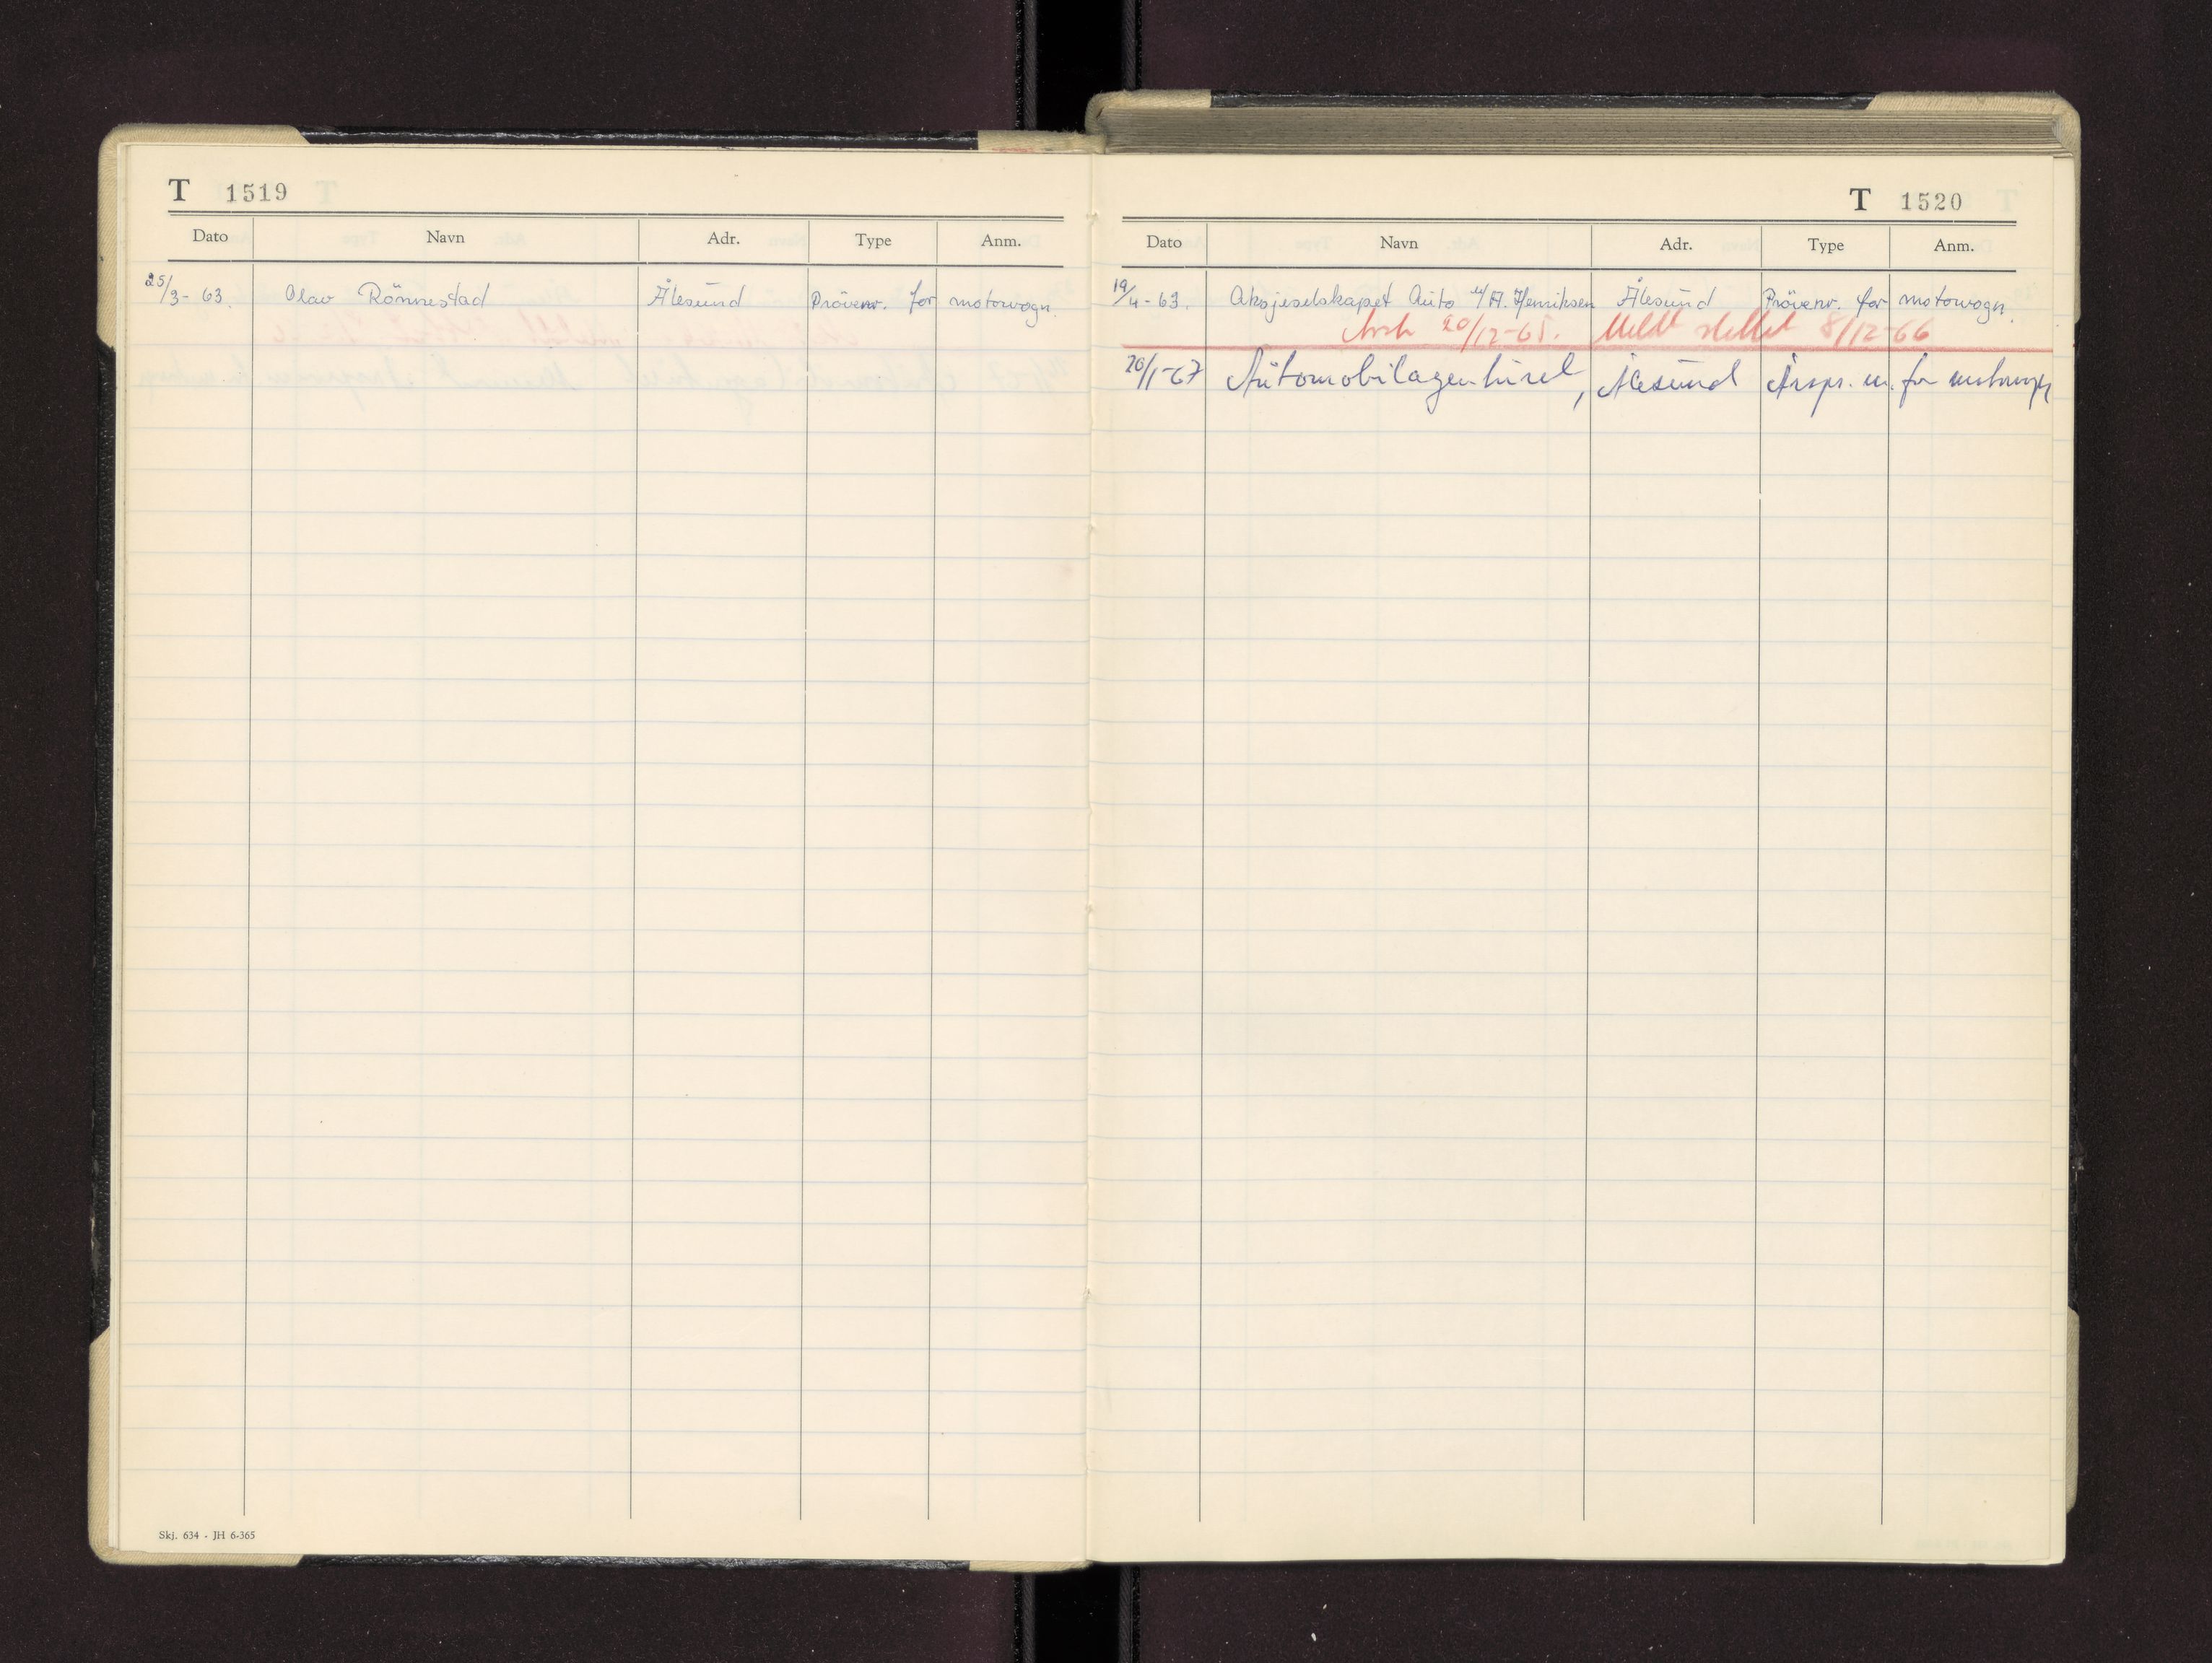 T 1519
Dato Navn Adr. Type Anm.
25/3-63. Olav Rönnestad Ålesund Prövenr. for motorvogn.
Skj. 634 - JH 6-365
T 1520
Dato Navn Adr. Type Anm.
19/4-63. Aksjeselskapet Auto v/A. Henriksen Ålesund Prövenr. for motorvogn.
20/12-65. Meldt slettet 8/12-66
20/1-67 Automobilagenturet, Ålesund Årspr. nr. for motorvogn